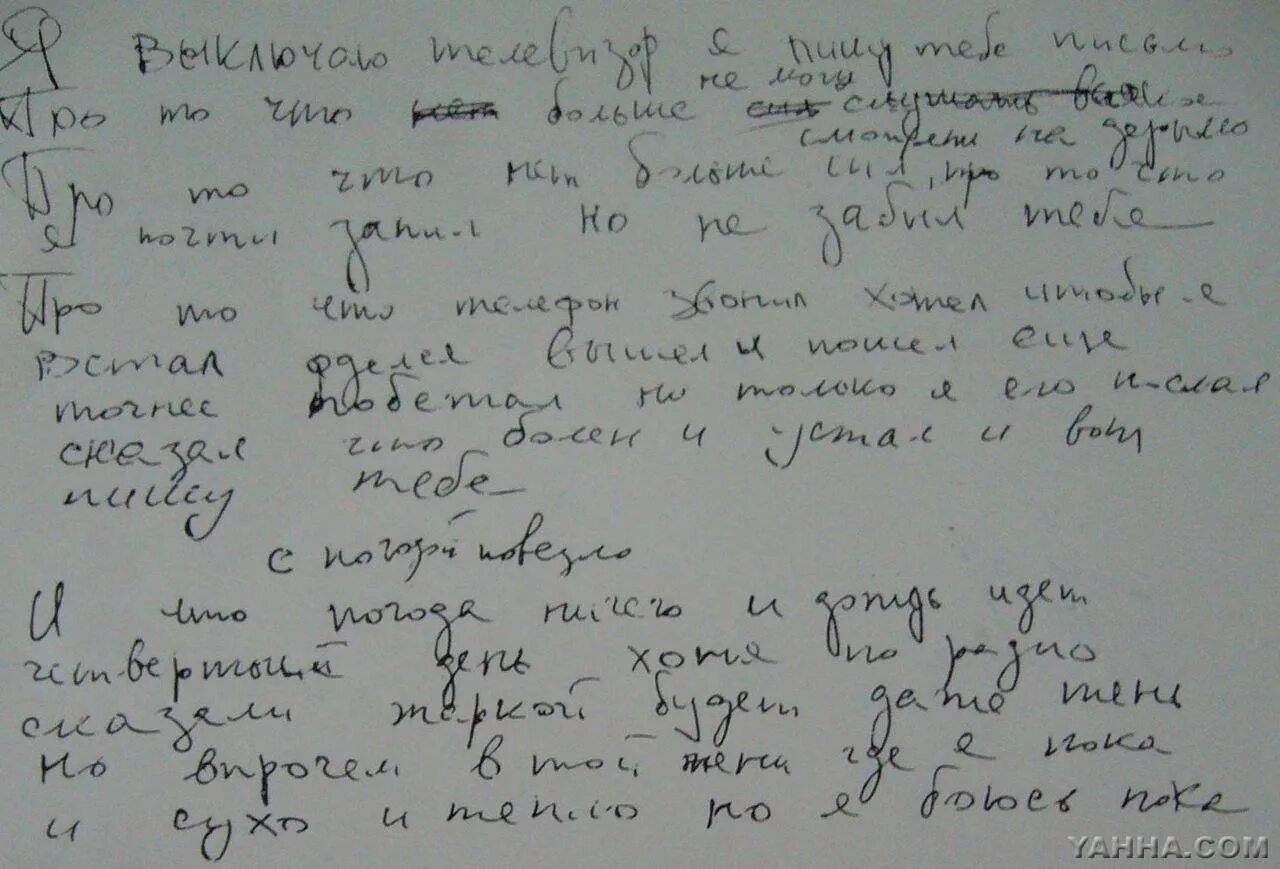 Я выключаю телевизор я пишу тебе письмо
не могу
Про то что нет больше сил слушать
смотреть на дерьмо
Про то что нет больше сил, про то что
я почти запил но не забыл тебя
Про то что телефон звонил хотел чтобы я
встал оделся вышел и пошел еще
точнее побежал но только я его послал
сказал что болен и устал и вот
пишу тебе
с погодой повезло
И что погода ничего и дождь идет
четвертый день хотя по радио
сказали жаркой будет даже тень
но впрочем в той тени где я пока
и сухо и тепло но я боюсь пока
YAHHA.COM